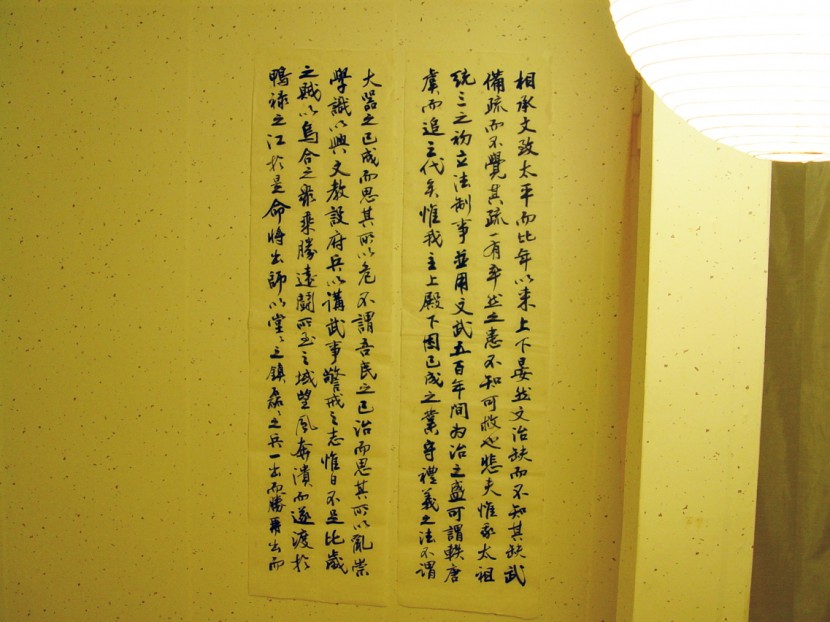 相承文政太平而比年以來上下晏然文治缺而不知其缺武
備疏而不覺其疏一有卒然之患不知可救也悲夫惟我太祖
統三之初立法制事並用文武五百年间为治之盛可謂軼唐
虞而追三代矣惟我主上殿下因已成之業守禮義之法不謂
大器之已成而思其所以危不謂吾民之已治而思其所以亂崇
學識以興文教設府兵以講武事警戒之志惟日不足比歲
之賊以烏合之衆乘勝遠鬪所至之城望風奔潰而遂渡於
鴨祿之江於是命將出師以堂〻之鎮磊〻之兵一出而勝再出而